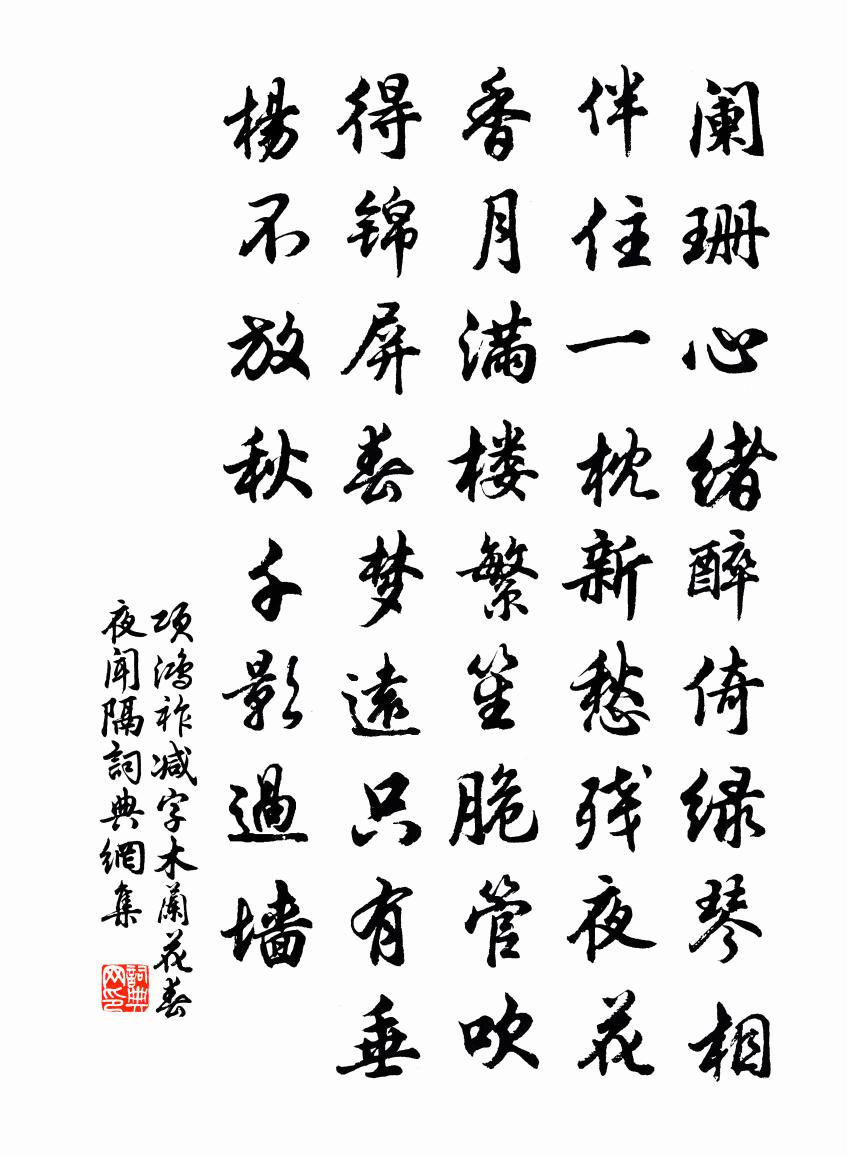 阑珊心绪醉倚绿琴相
伴住一枕新愁残夜花
香月满楼繁笙脆管吹
得锦屏春梦遠只有垂
楊不放秋千影過墙
项鴻祚减字木蘭花春
夜闻隔詞典網集
詞典
网印